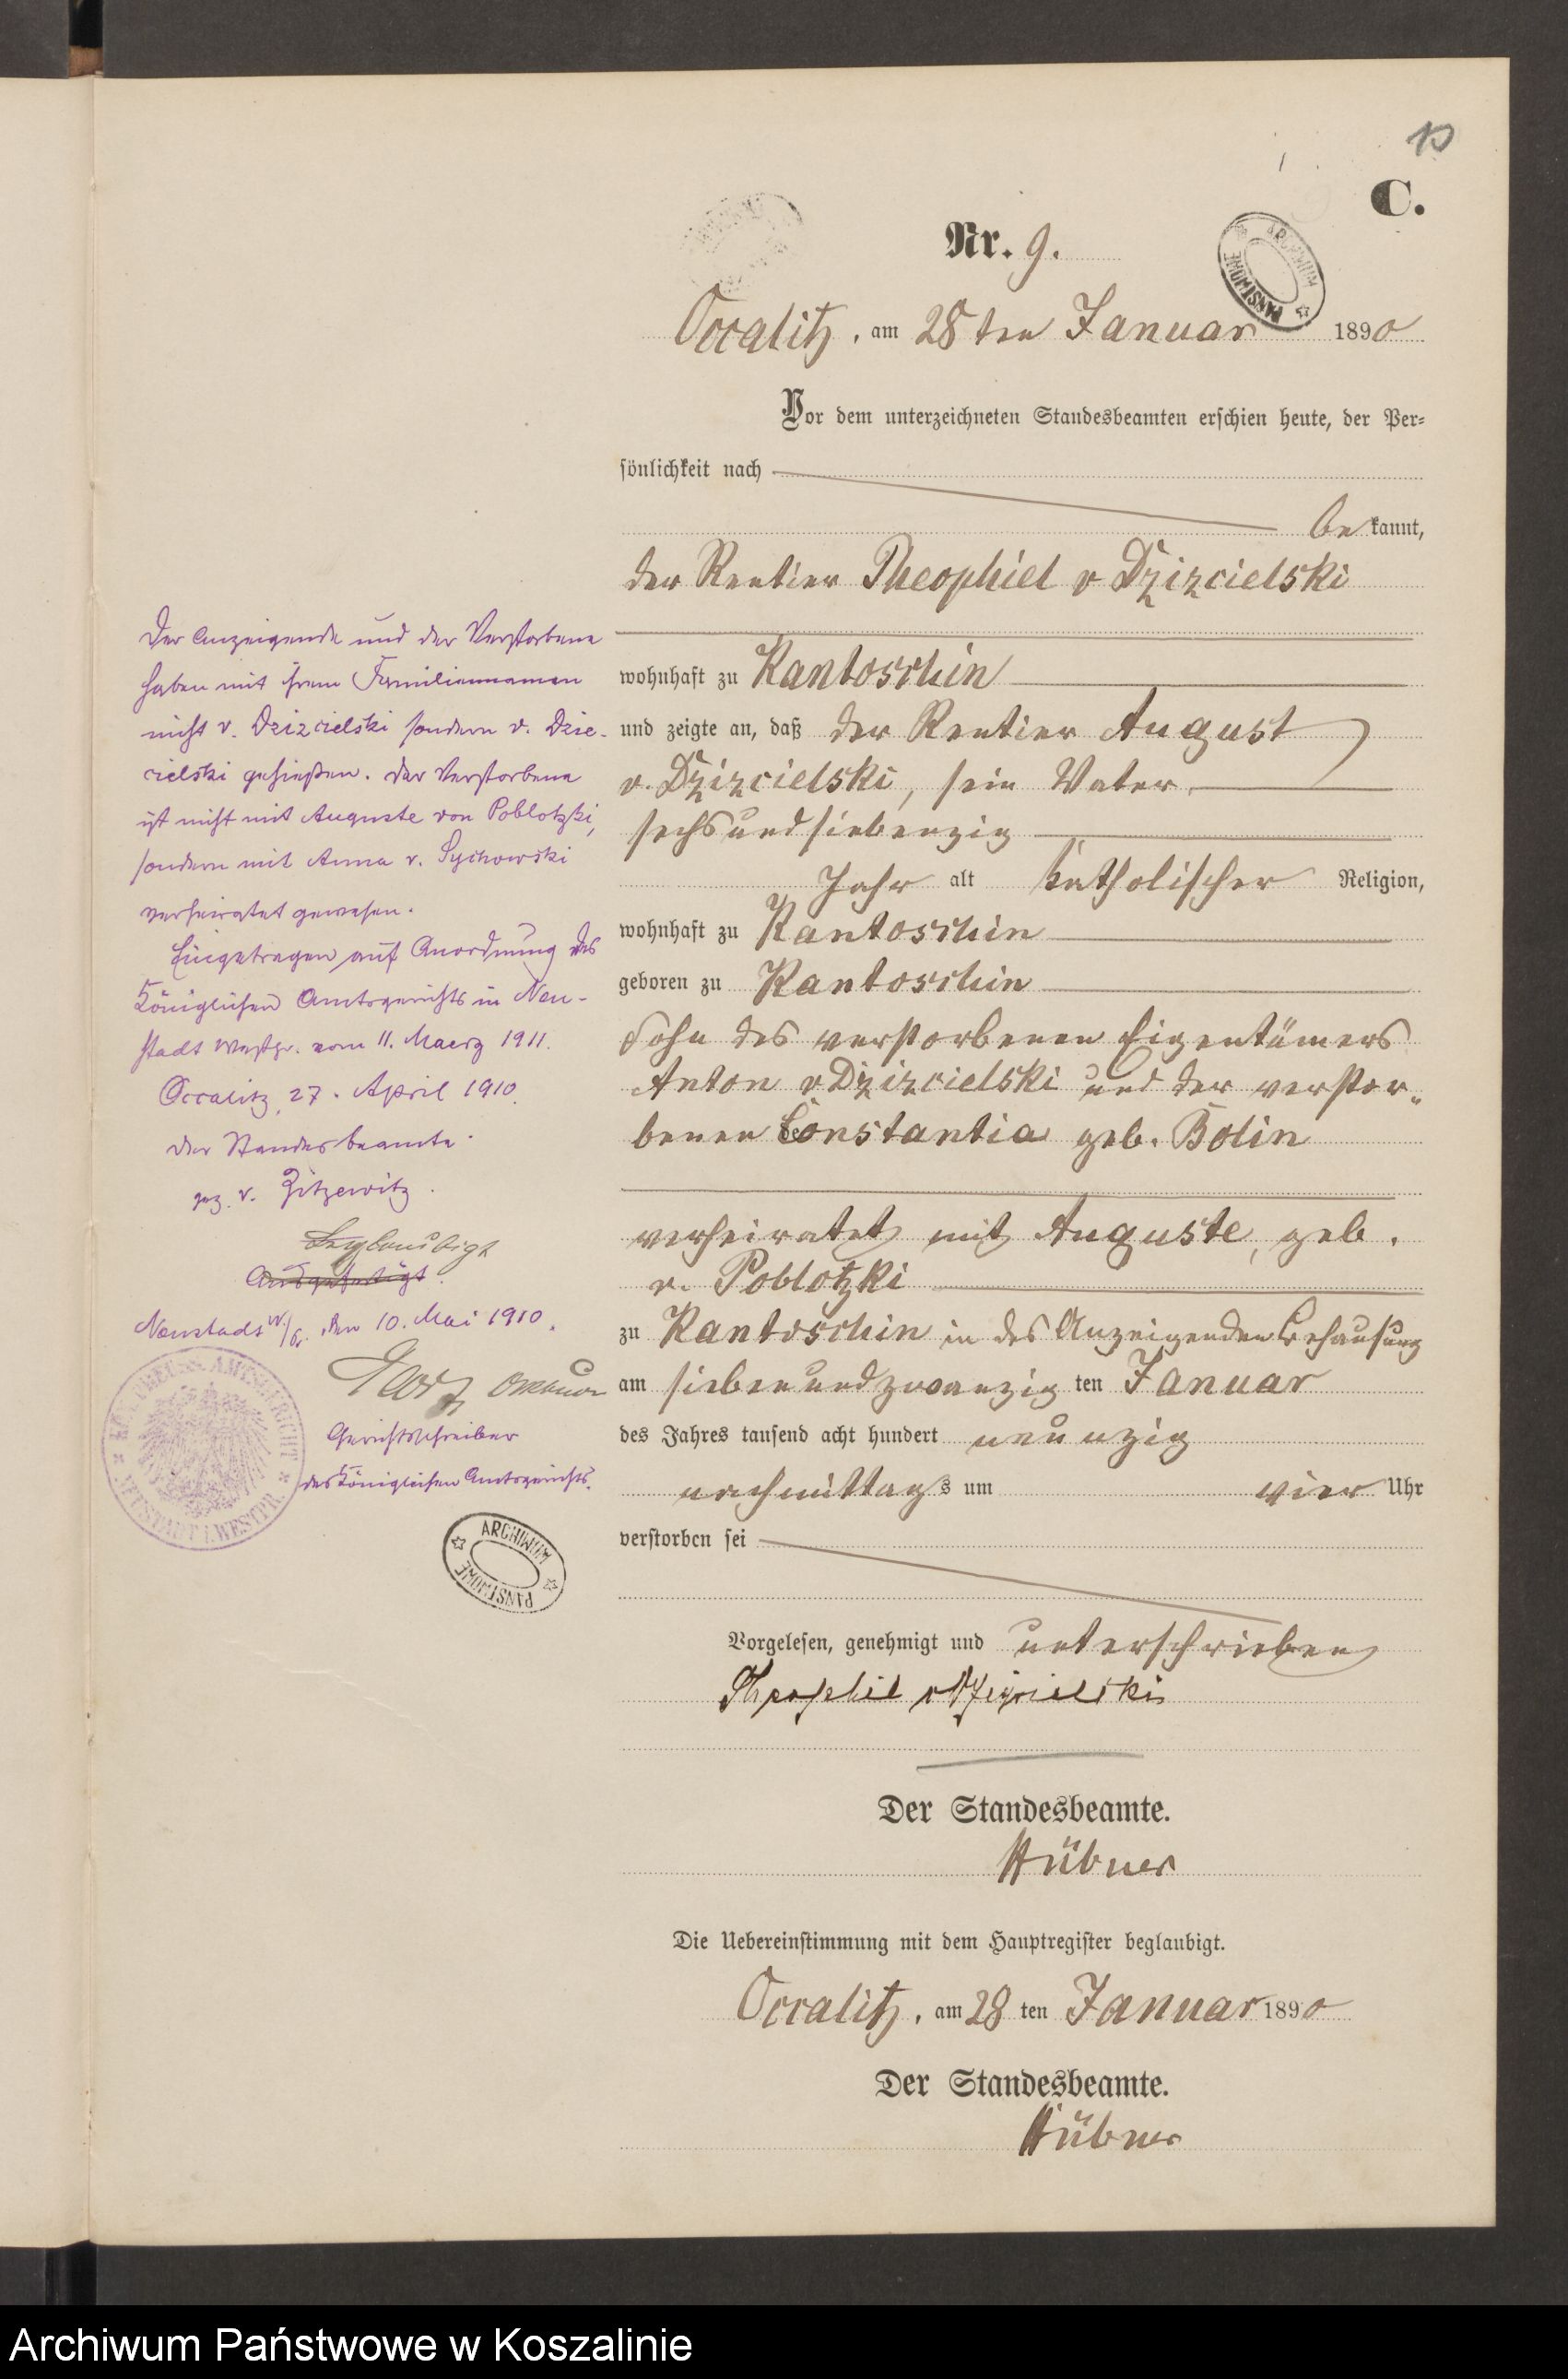 C.
Nr. 9.
Occalitz, am 28ten Januar 1890
Vor dem unterzeichneten Standesbeamten erschien heute, der Per-
sönlichkeit nach
bekannt,
der Rentier Theophiel v Dzizcielski
wohnhaft zu Kantoschin
und zeigte an, daß der Rentier August
v. Dzizcielski, sein Vater,
sechsundsiebenzig
Jahr alt katholischer Religion,
wohnhaft zu Kantoschin
geboren zu Kantoschin
Sohn des verstorbenen Eigentümers
Anton v Dzizcielski und der verstor-
benen Constantia geb. Bolin
verheiratet mit Auguste, geb.
v. Poblotzki
zu Kantoschin in des Anzeigenden Behausung
am siebenundzwanzig ten Januar
des Jahres tausend acht hundert neunzig
nachmittags um vier Uhr
verstorben sei
Vorgelesen, genehmigt und unterschrieben
Theophil v
Der Standesbeamte.
Hübner
Die Uebereinstimmung mit dem Hauptregister beglaubigt.
Occalitz, am 28 ten Januar 1890
Der Standesbeamte.
Hübner
Der Anzeigende und der Verstorbene
haben mit ihrem Familiennamen
nicht v. Dzizcielski sondern v. Dzie-
cielski geheißen. Der Verstorbene
ist nicht mit Auguste von Poblotzki,
sondern mit Anna v. Sychowski
verheiratet gewesen.
Eingetragen auf Anordnung des
Königlichen Amtsgerichts in Neu-
stadt Westpr. vom 11. Maerz 1911.
Occalitz, 27. April 1910.
Der Standesbeamte.
gez. v. Zitzewitz.
Beglaubigt
Ausgefertigt.
Neustadt W./Pr. den 10. Mai 1910.
Gerichtsschreiber
des Königlichen Amtsgerichts.
KOEN. PREUSS. AMTSGERICHT
NEUSTADT I. WESTPR.
ARCHIWUM
PAŃSTWOWE
ARCHIWUM
PAŃSTWOWE
Archiwum Państwowe w Koszalinie